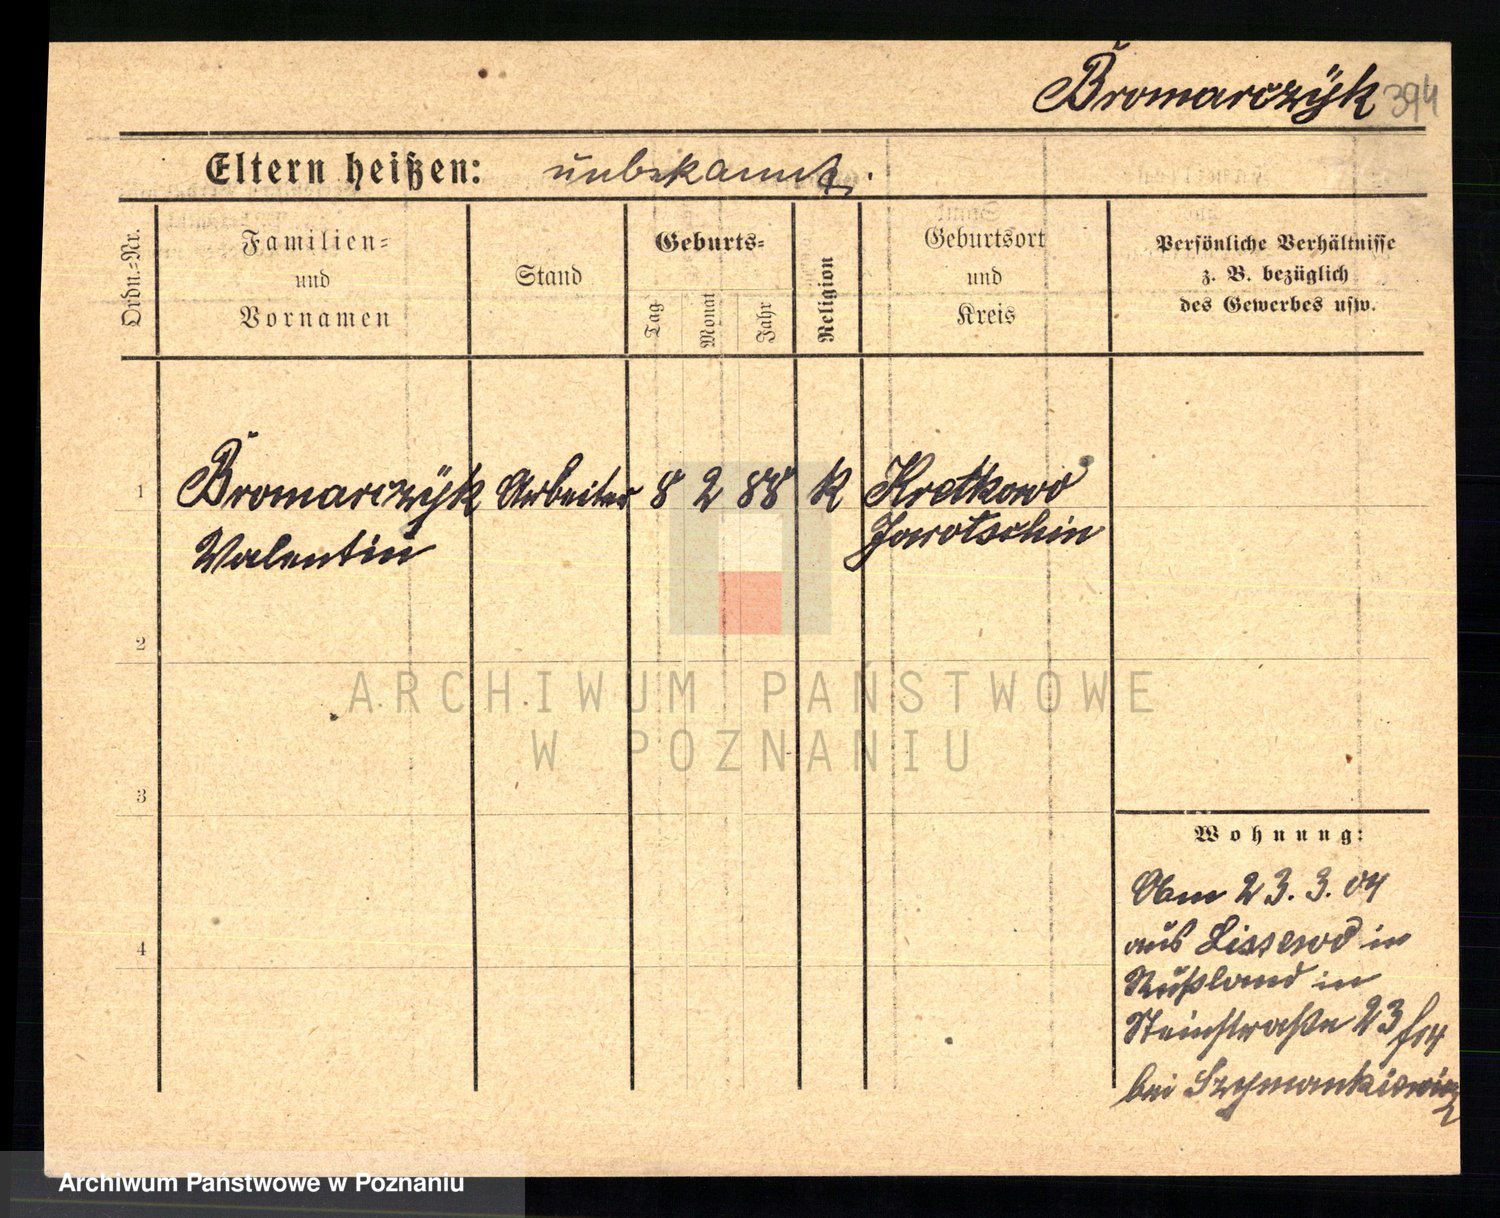 Bromarczÿk 394
Eltern heißen: unbekannt.
Ordn.-Nr.
Familien-
und
Vornamen
Stand
Geburts-
Tag
Monat
Jahr
Religion
Geburtsort
und
Kreis
Persönliche Verhältnisse
z. B. bezüglich
des Gewerbes usw.
1 Bromarczÿk Arbeiter 8 2 88 K Kretkowo
Valentin Jarotschin
2
3
4
ARCHIWUM PAŃSTWOWE
W POZNANIU
Wohnung:
Am 23.3.04
aus in
Rußland in
Steinstraße 23
bei Szymankiewicz
Archiwum Państwowe w Poznaniu